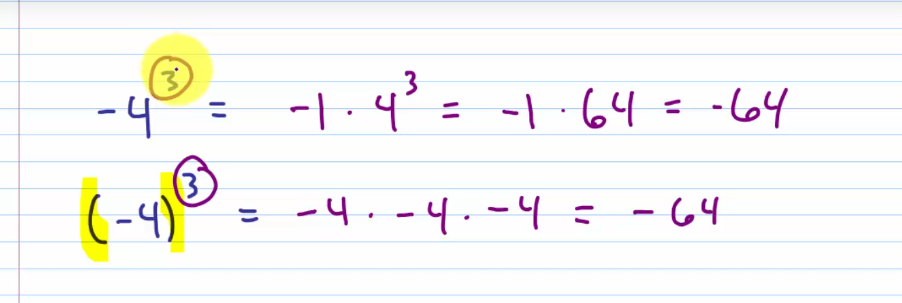 -4³ = -1 · 4³ = -1 · 64 = -64
(-4)³ = -4 · -4 · -4 = -64